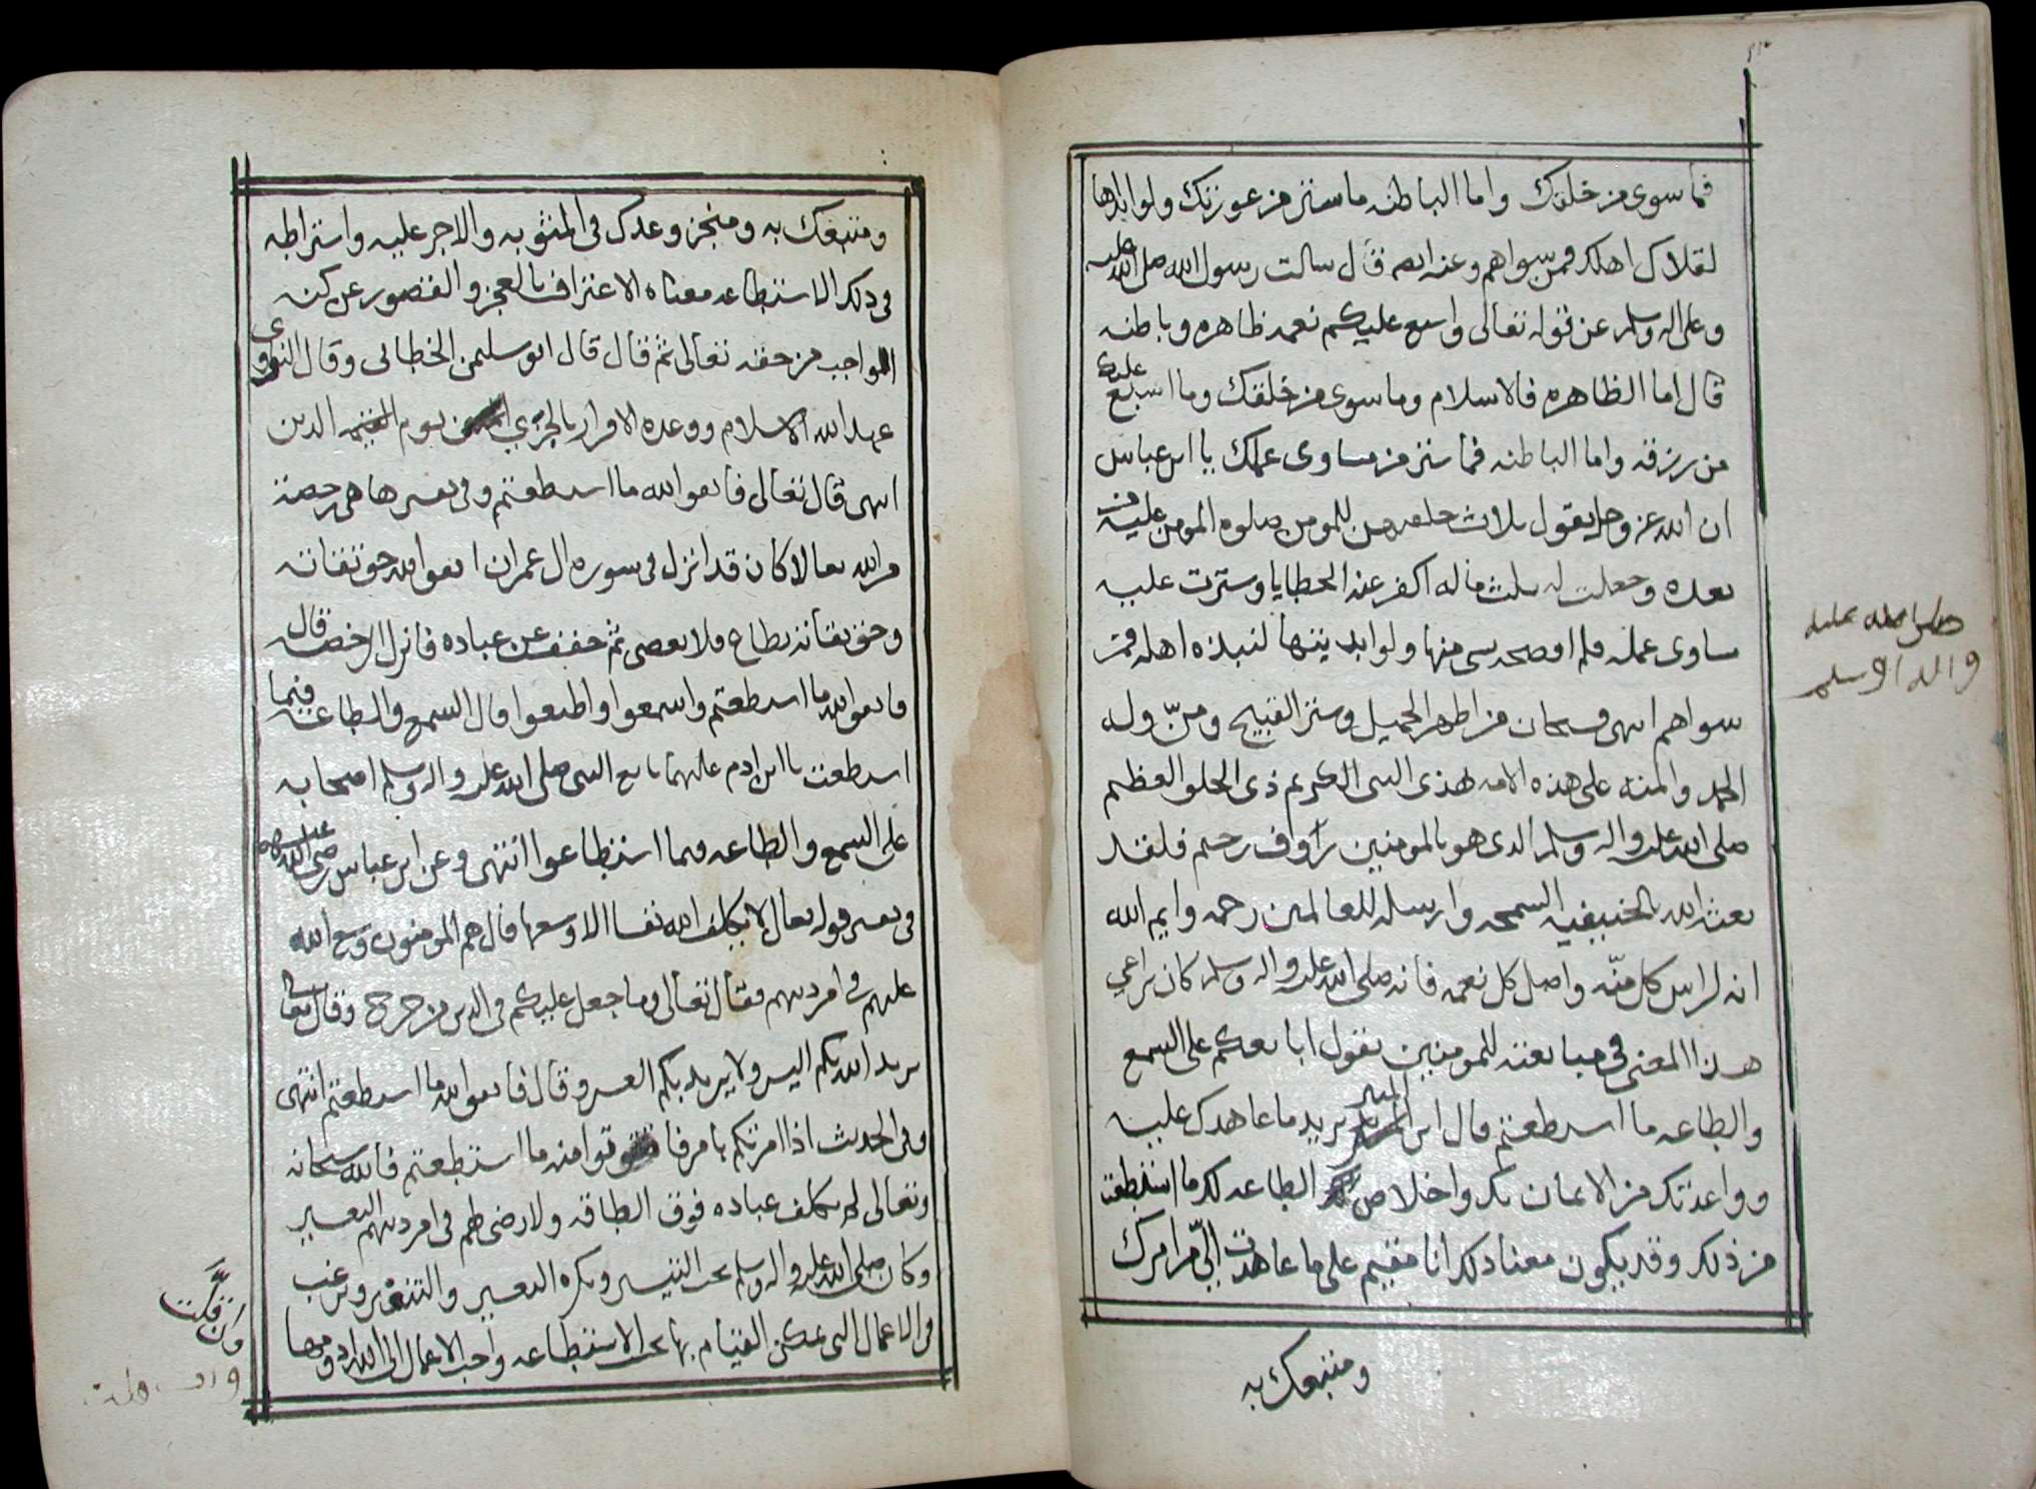 فما سوى من خلقك واما الباطنه ما ستر من عورتك ولو ابداها
لقلاك اهلك فمن سواهم وعنه ايضا قال سالت رسول الله صلى الله عليه
وعلى اله وسلم عن قوله تعالى واسبغ عليكم نعمه ظاهره وباطنه
قال اما الظاهره فالاسلام وما سوى من خلقك وما اسبغ عليك
من رزقه واما الباطنه فما ستر من مساوى عملك يا ابن عباس
ان الله عز وجل يقول ثلاث جعلتهن للمومن صلوه المومنين عليه من
بعده وجعلت له ثلث ماله اكفر عنه الخطايا وسترت عليه
مساوى عمله فلم افضحه بشى منها ولو ابديتها لنبذه اهله فمن
سواهم انتهى فسبحان من اظهر الجميل وستر القبيح ومنّ وله
الحمد والمنه على هذه الامه بهذى النبى الكريم ذى الخلق العظيم
صلى الله عليه واله وسلم الذى هو بالمومنين رؤوف رحيم فلقد
بعثه الله بالحنيفيه السمحه وارسله للعالمين رحمه وايم الله
انه لراس كل منّه واصل كل نعمه فانه صلى الله عليه واله وسلم كان يراعي
هذا المعنى في مبايعته للمومنين يقول ابايعكم على السمع
والطاعه ما استطعتم قال ابن المنير يريد ما عاهدك عليه
وواعدتك من الايمان بك واخلاص الطاعه لك ما استطعت
من ذلك وقد يكون معناه ذلك انا مقيم على ما عاهدت الىّ من امرك
ومتبعك به
صلى الله عليه
واله وسلم
ومتبعك به ومنجز وعدك في المثوبه والاجر عليه واشتراطه
في ذلك الاستطاعه معناه الاعتراف بالعجز والقصور عن كنه
الواجب من حقه تعالى ثم قال قال ابو سليمن الخطابى وقال النووى
عهد الله الاسلام ووعده الاقرار بالجزي يوم الدين
انتهى قال تعالى فاتقوا الله ما استطعتم وفي تفسيرها هي رخصة
من الله تعالى كان قد انزل في سوره ال عمران اتقوا الله حق تقاته
وحق تقاته يطاع فلا يعصى ثم خفف عن عباده فانزل الرخصه قال
فاتقوا الله ما استطعتم واسمعوا واطيعوا قال السمع والطاعه فيما
استطعت يا ابن ادم عليهما بايع النبى صلى الله عليه واله وسلم اصحابه
على السمع والطاعه فيما استطاعوا انتهى وعن ابن عباس رضى الله عنهما
في تفسير قوله تعالى لا يكلف الله نفسا الا وسعها قال هم المومنون وسع الله
عليهم في امر دينهم فقال تعالى وما جعل عليكم في الدين من حرج وقال تعالى
يريد الله بكم اليسر ولا يريد بكم العسر وقال فاتقوا الله ما استطعتم انتهى
وفي الحديث اذا امرتكم بامر فاتوا منه ما استطعتم فالله سبحانه
وتعالى لم يكلف عباده فوق الطاقه ولا رضى لهم في امر دينهم التعسير
وكان صلى الله عليه واله وسلم يحب التيسير ويكره التعسير والتنفير ويرغب
في الاعمال التى يمكن القيام بها بحسب الاستطاعه واحب الاعمال الى الله ادومها
وان قلت